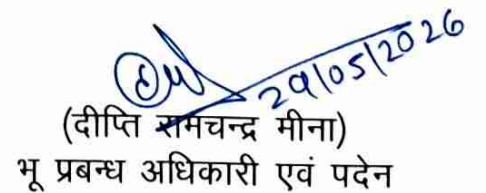 29/05/2026
(दीप्ति रामचन्द्र मीना)
भू प्रबन्ध अधिकारी एवं पदेन